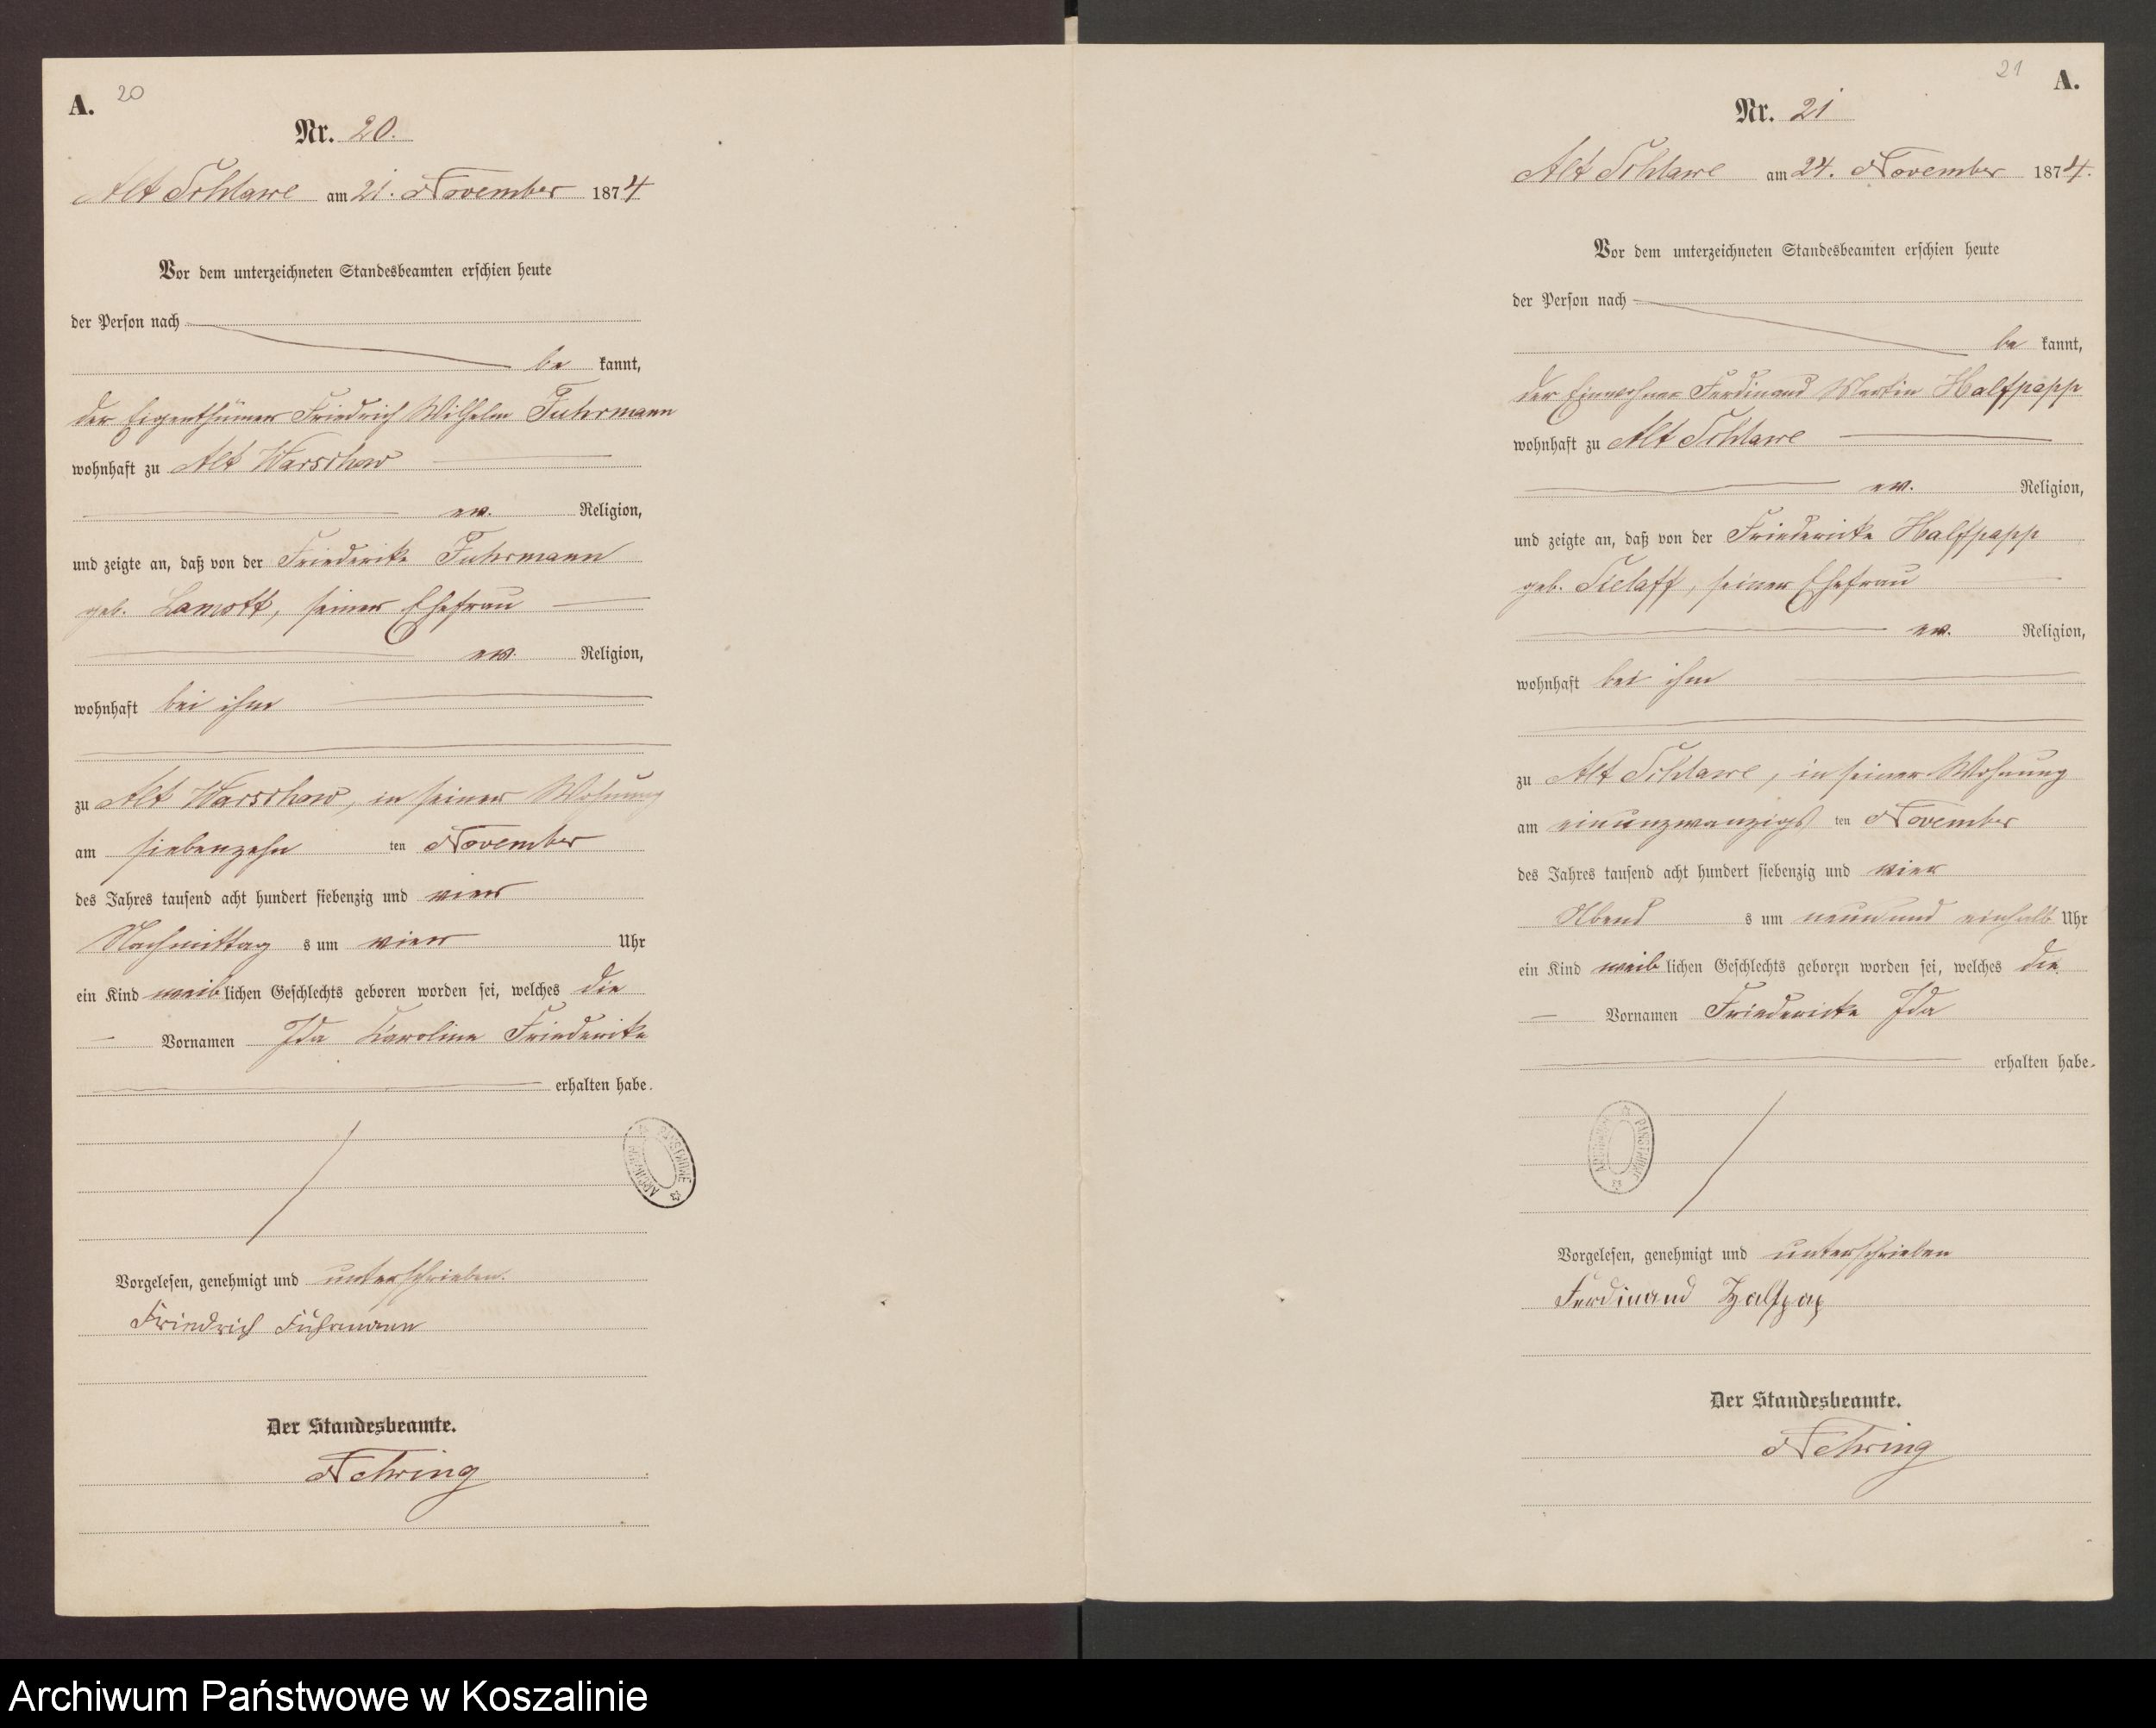 A. 20
Nr. 20.
Alt Schlawe am 21. November 1874
Vor dem unterzeichneten Standesbeamten erschien heute
der Person nach
be kannt,
der Eigenthümer Friedrich Wilhelm Fuhrmann
wohnhaft zu Alt Warschow
ev. Religion,
und zeigte an, daß von der Friederike Fuhrmann
geb. Lamott, seiner Ehefrau
ev. Religion,
wohnhaft bei ihm
zu Alt Warschow, in seiner Wohnung
am siebenzehn ten November
des Jahres tausend acht hundert siebenzig und vier
Nachmittag s um vier Uhr
ein Kind weib lichen Geschlechts geboren worden sei, welches die
Vornamen Ida Karoline Friederike
erhalten habe.
ARCHIWUM PAŃSTWOWE
Vorgelesen, genehmigt und unterschrieben.
Friedrich Fuhrmann
Der Standesbeamte.
Nehring
21 A.
Nr. 21
Alt Schlawe am 24. November 1874.
Vor dem unterzeichneten Standesbeamten erschien heute
der Person nach
be kannt,
der Einwohner Ferdinand Martin Halfpapp
wohnhaft zu Alt Schlawe
ev. Religion,
und zeigte an, daß von der Friedericke Halfpapp
geb. Sielaff, seiner Ehefrau
ev. Religion,
wohnhaft bei ihm
zu Alt Schlawe, in seiner Wohnung
am einunzwanzigs ten November
des Jahres tausend acht hundert siebenzig und vier
Abend s um neun und einhalb Uhr
ein Kind weib lichen Geschlechts geboren worden sei, welches die
Vornamen Friedericke Ida
erhalten habe.
ARCHIWUM PAŃSTWOWE
Vorgelesen, genehmigt und unterschrieben
Ferdinand Halfpap
Der Standesbeamte.
Nehring
Archiwum Państwowe w Koszalinie